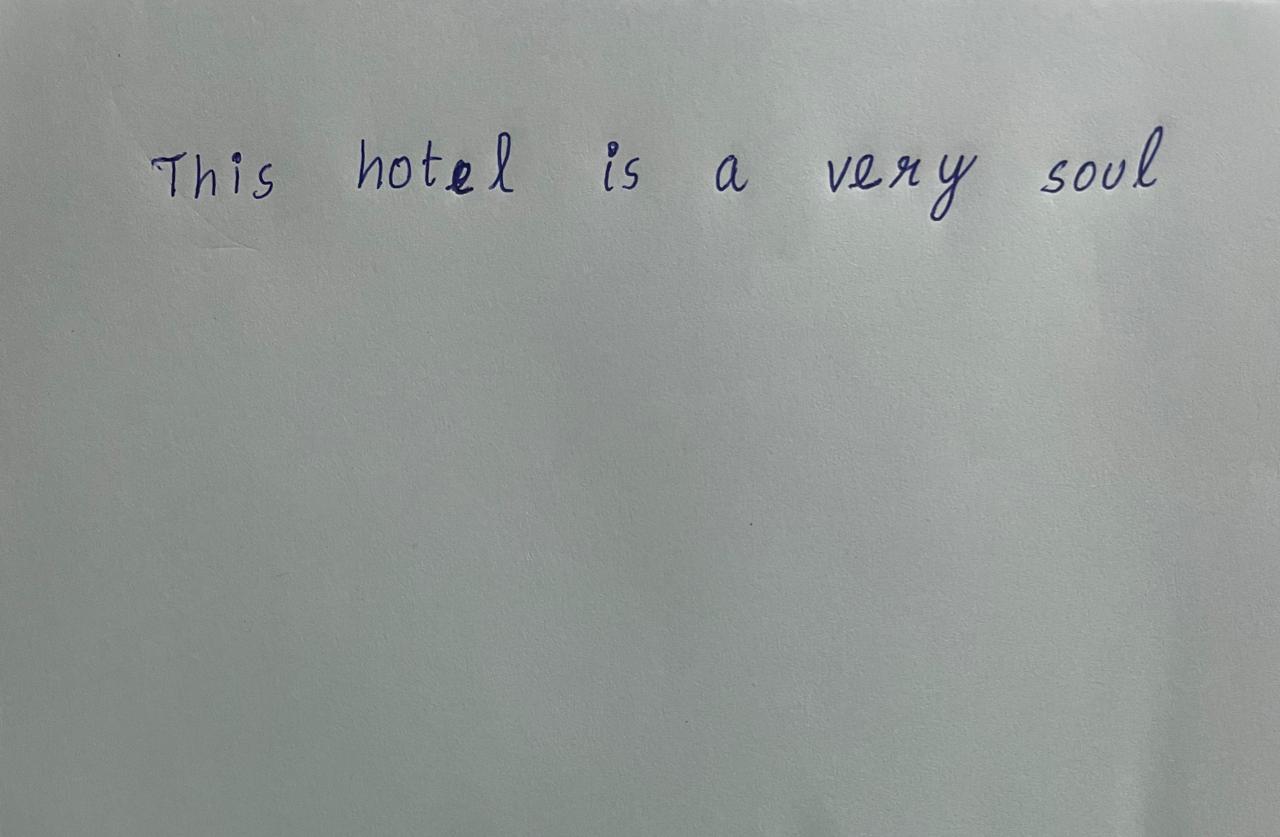 This hotel is a very soul